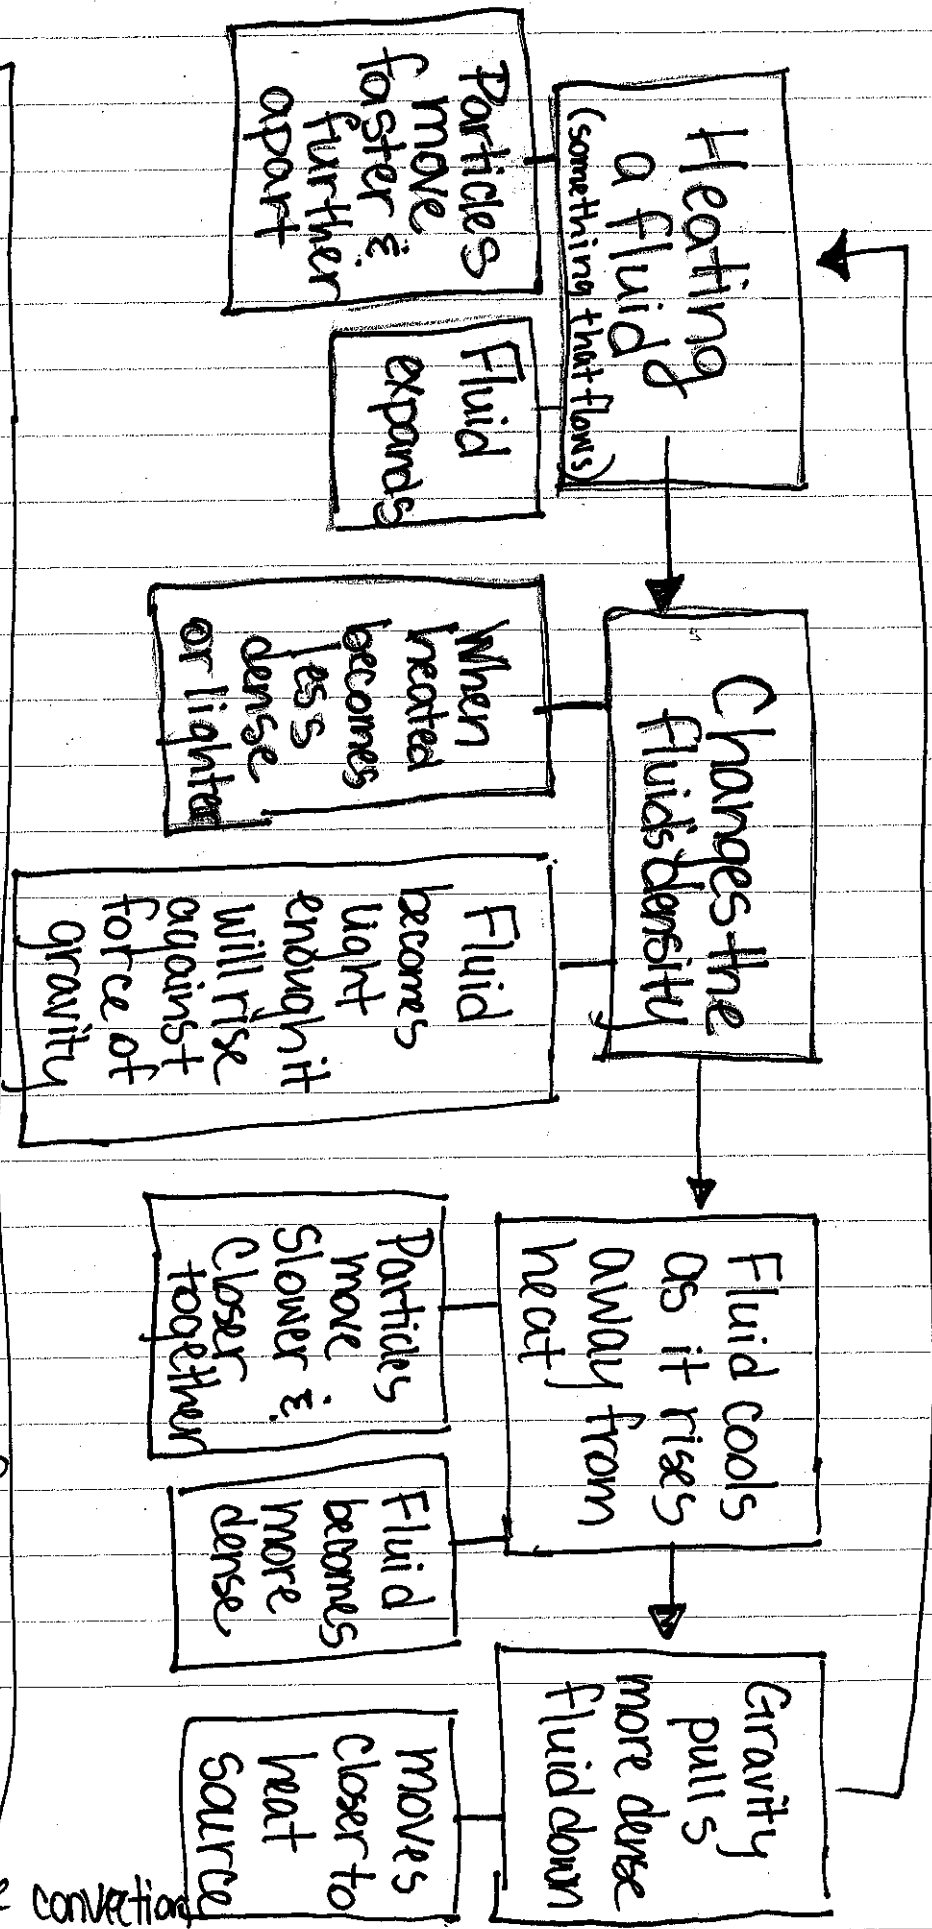 Heating
a fluid
(something that flows)
Particles
move
faster &
further
apart
Fluid
expands
Changes the
fluids density
When
heated
becomes
less
dense
or lighter
Fluid
becomes
light
enough it
will rise
against
force of
gravity
Fluid cools
as it rises
away from
heat
Particles
move
slower &
closer
together
Fluid
becomes
more
dense
Gravity
pulls
more dense
fluid down
moves
closer to
heat
source
convection